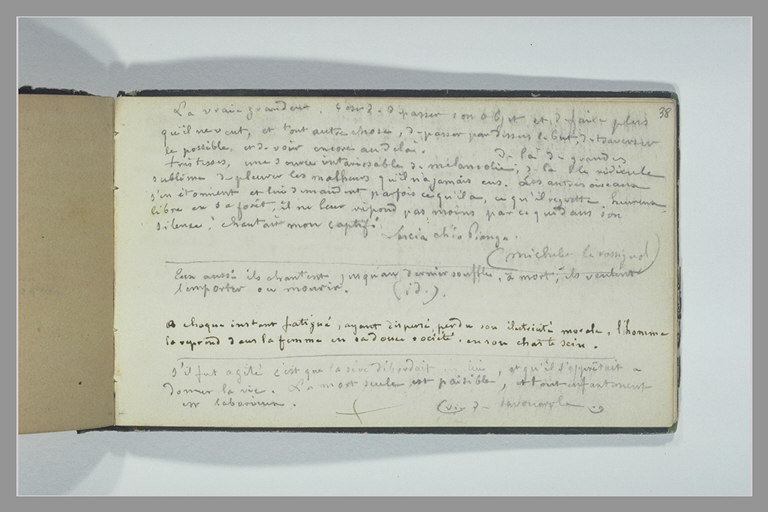 38
La vraie grandeur. C'est de dépasser son objet et, de faire plus
qu'il ne veut, et tout autre chose, de passer par dessus le but, de traverser
le possible, et de voir encore au delà. De là de grandes
tristesses, une source intarissable de mélancolie; de là le ridicule
sublime de pleurer les malheurs qu'il n'a jamais eus. Les autres oiseaux
s'en étonnent et lui demandent parfois ce qu'il a, ce qu'il regrette. heureux
libre en sa forêt, il ne leur répond pas moins par ce que dans son
silence, chantait mon captif:
Lascia ch'io pianga.
(michelet le rossignol)
Eux aussi ils chantent jusqu'au dernier souffle, à mort, ils veulent
l'emporter ou mourir. (id.).
à chaque instant fatigué, ayant dispersé, perdu son élasticité morale, l'homme
la reprend dans la femme en sa douce société, en son chaste sein.
S'il fut agité c'est que la sève débordait en lui, et qu'il s'apprêtait à
donner la vie. La mort seule est paisible, et tout enfantement
est laborieux.
(vie de Savonarole)